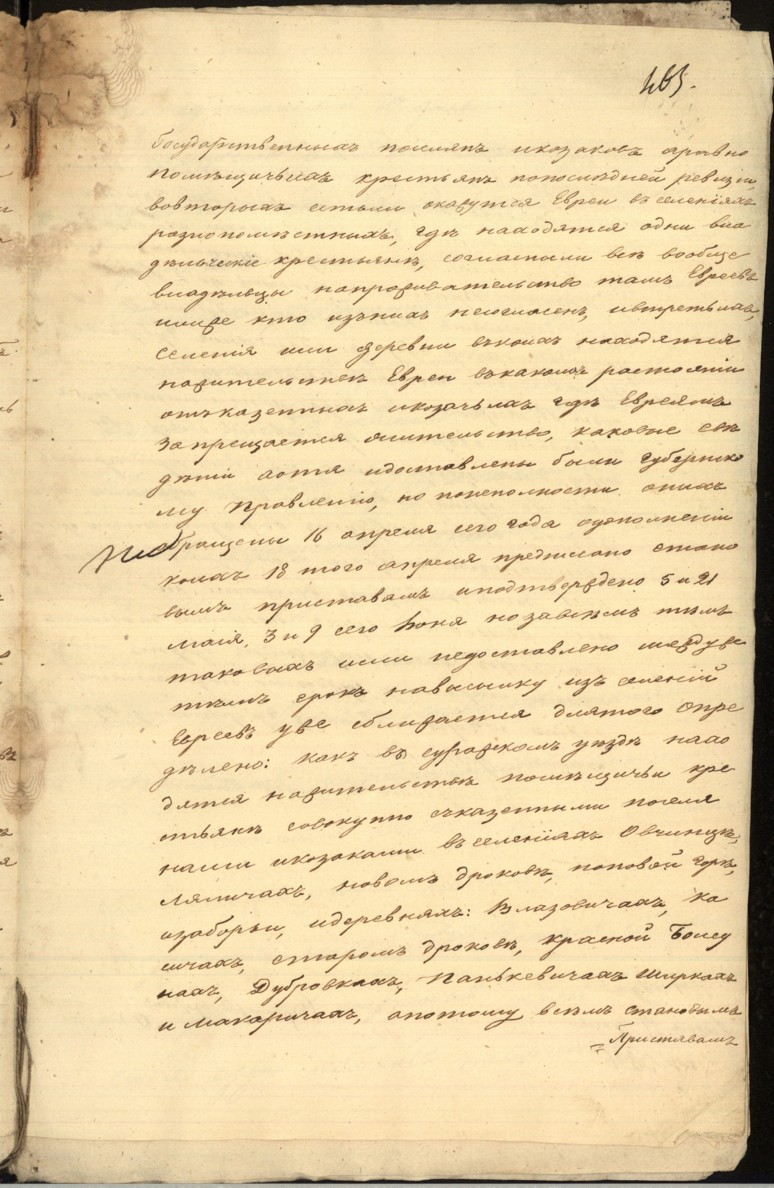 465.
Государственныхъ поселянъ икозаковъ аравно
Помѣщичьихъ крестьянъ попослѣдней ревизіи,
вовторыхъ естьли окажутся Евреи въ селеніяхъ
разнопомѣстныхъ, гдѣ находятся одни вла
дѣльческіе крестьяне, согласныли всѣ вообще
владѣльцы напроживательство тамъ Евреевъ
илиже кто изънихъ несогласенъ, ивтретьихъ,
селенія или деревни въкоихъ находятся
нажительствѣ Евреи въкакомъ растояніи
отъказенныхъ икозачьихъ гдѣ Евреямъ
Запрещается жительство, каковые свѣ
дѣніи хотя идоставлены были Губернско
му Правленію, но понеполности оныхъ
обращены 16 апреля сего года одополненіи
коихъ 18 того апреля предписано стано
вымъ приставамъ иподтверждено 5 и 21
маія, 3 и 9 сего Іюня нозавсѣмъ тѣмъ
таковыхъ неполучено междуже
тѣмъ срокъ навысылку изъ селеній
Евреевъ уже сближается длятого Опре
дѣлено: какъ въ суражскомъ уѣздѣ нахо
дятся нажительствѣ помѣщичьи кре
стьяне совокупно съказенными поселя
нами икозаками въ селеніяхъ Овчинцѣ,
Ляличахъ, новомъ дроковѣ, поповой горѣ,
изаборьи, идеревняхъ: Влазовичахъ, ка
сичахъ, старомъ дроковѣ, красной
Дубровкахъ, Панькевичахъ Ширкахъ
и макаричахъ, апотому всѣмъ становымъ
Приставамъ